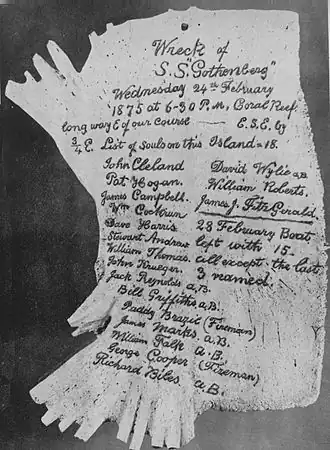 Wreck of
S.S. "Gothenberg"
Wednesday 24th February
1875 at 6-30 P.M, Coral Reef
long way E of our course — E.S.E. by
3/4 E. List of Souls on this Island = 18.
John Cleland David Wylie a.B.
Pat Hogan. William Roberts.
James Campbell. James J. Fitz Gerald.
Wm Cockrum 28 February Boat
Dave Harris left with 15-
Stewart Andrew all except the last
William Thomas. 3 named.
John Krueger.
Jack Reynolds a.B.
Bill Griffiths a.B.
Paddy Brazil (Fireman)
James Marks. a.B.
William Falk a.B.
George Cooper (Fireman)
Richard Biles a.B.